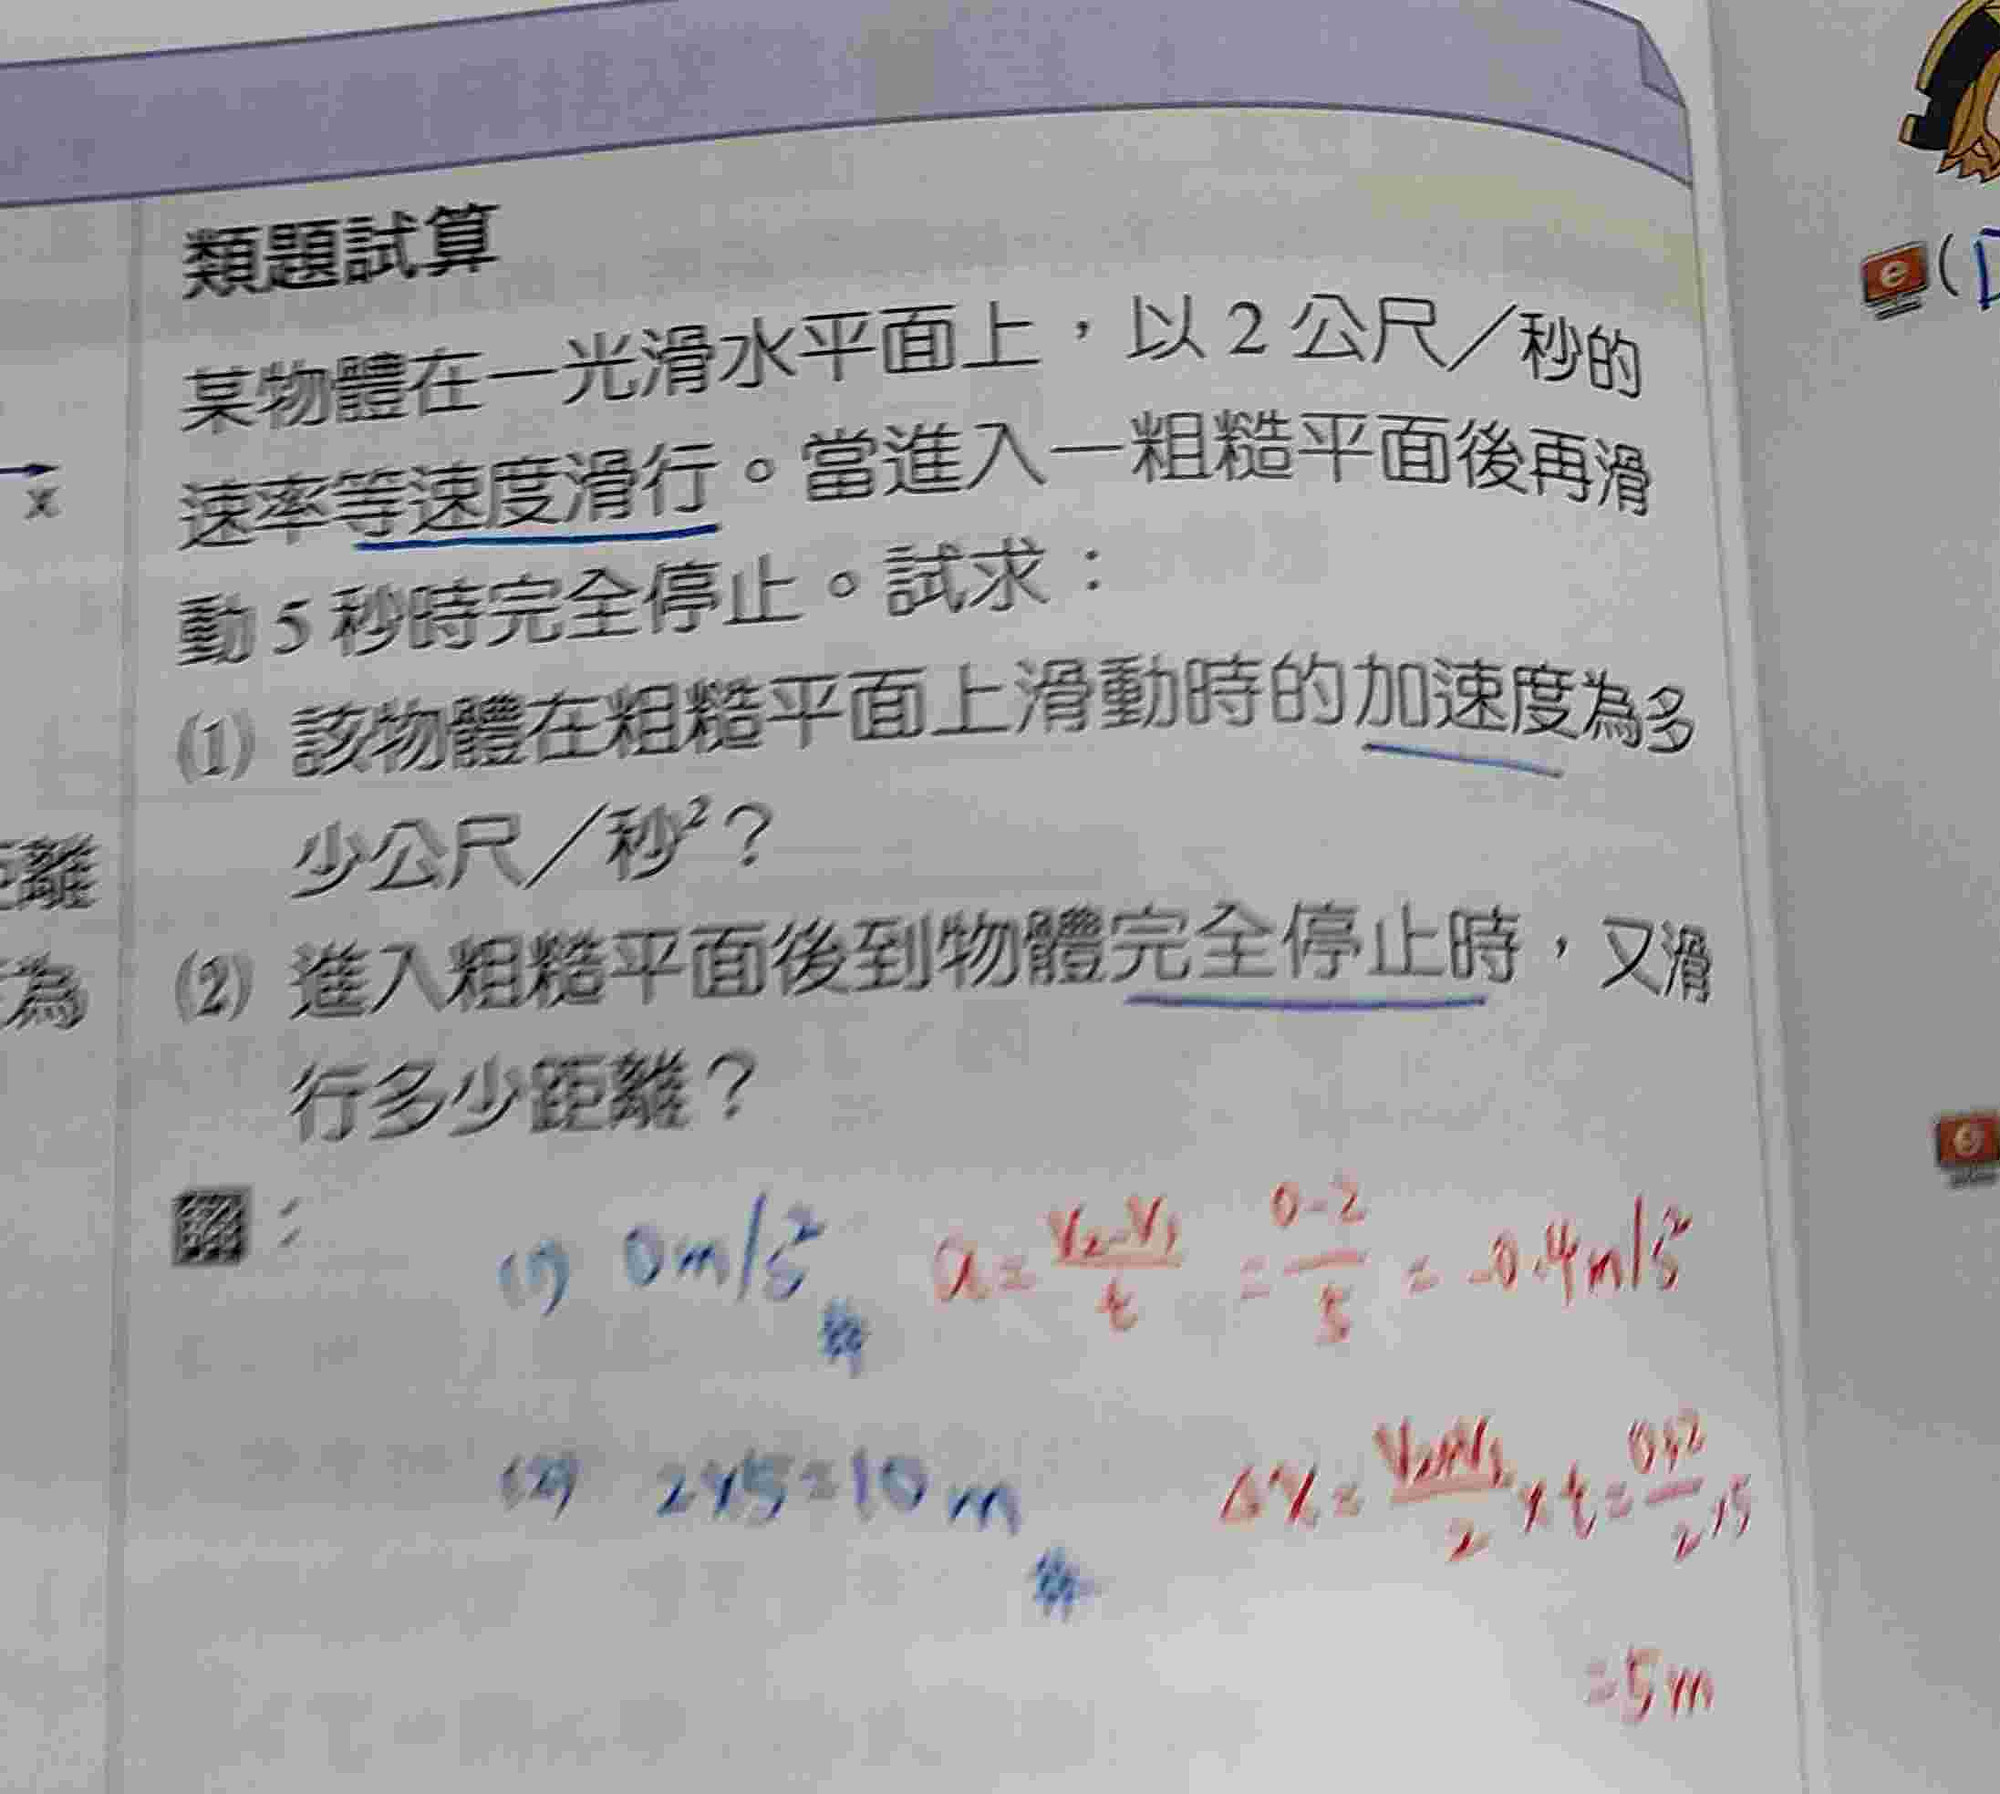 類題試算
某物體在一光滑水平面上，以 2 公尺／秒的
速率等速度滑行。當進入一粗糙平面後再滑
動 5 秒時完全停止。試求：
(1) 該物體在粗糙平面上滑動時的加速度為多
少公尺／秒²？
(2) 進入粗糙平面後到物體完全停止時，又滑
行多少距離？
(1) 0 m/s² a = (V₂-V₁)/t = (0-2)/5 = -0.4 m/s²
(2) 2×5=10 m Δx = (V₂+V₁)/2 × t = (0+2)/2 ×5
=5m
x
距離
為
e
(D
e